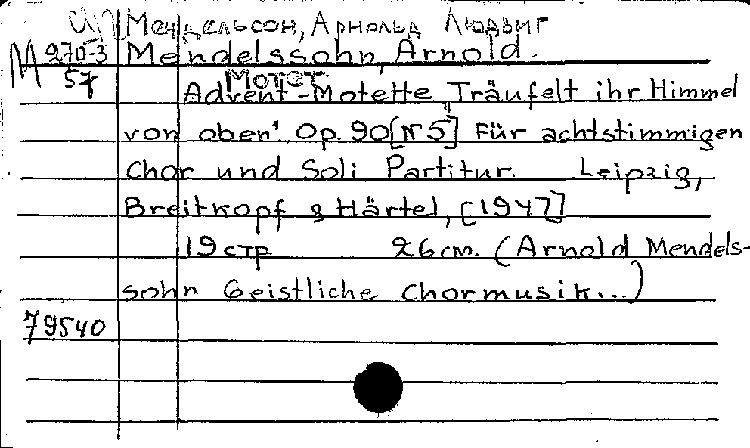 Мендельсон, Арнольд Людвиг
М 270-3 Mendelssohn, Arnold.
57 Мотет
Advent-Motette „Träufelt ihr Himmel
von oben" Op. 90 [N 5] Für achtstimmigen
Chor und Soli Partitur. Leipzig,
Breitkopf & Härtel, [1947]
19 стр 26 cm. (Arnold Mendels-
sohn Geistliche Chormusik...)
79540